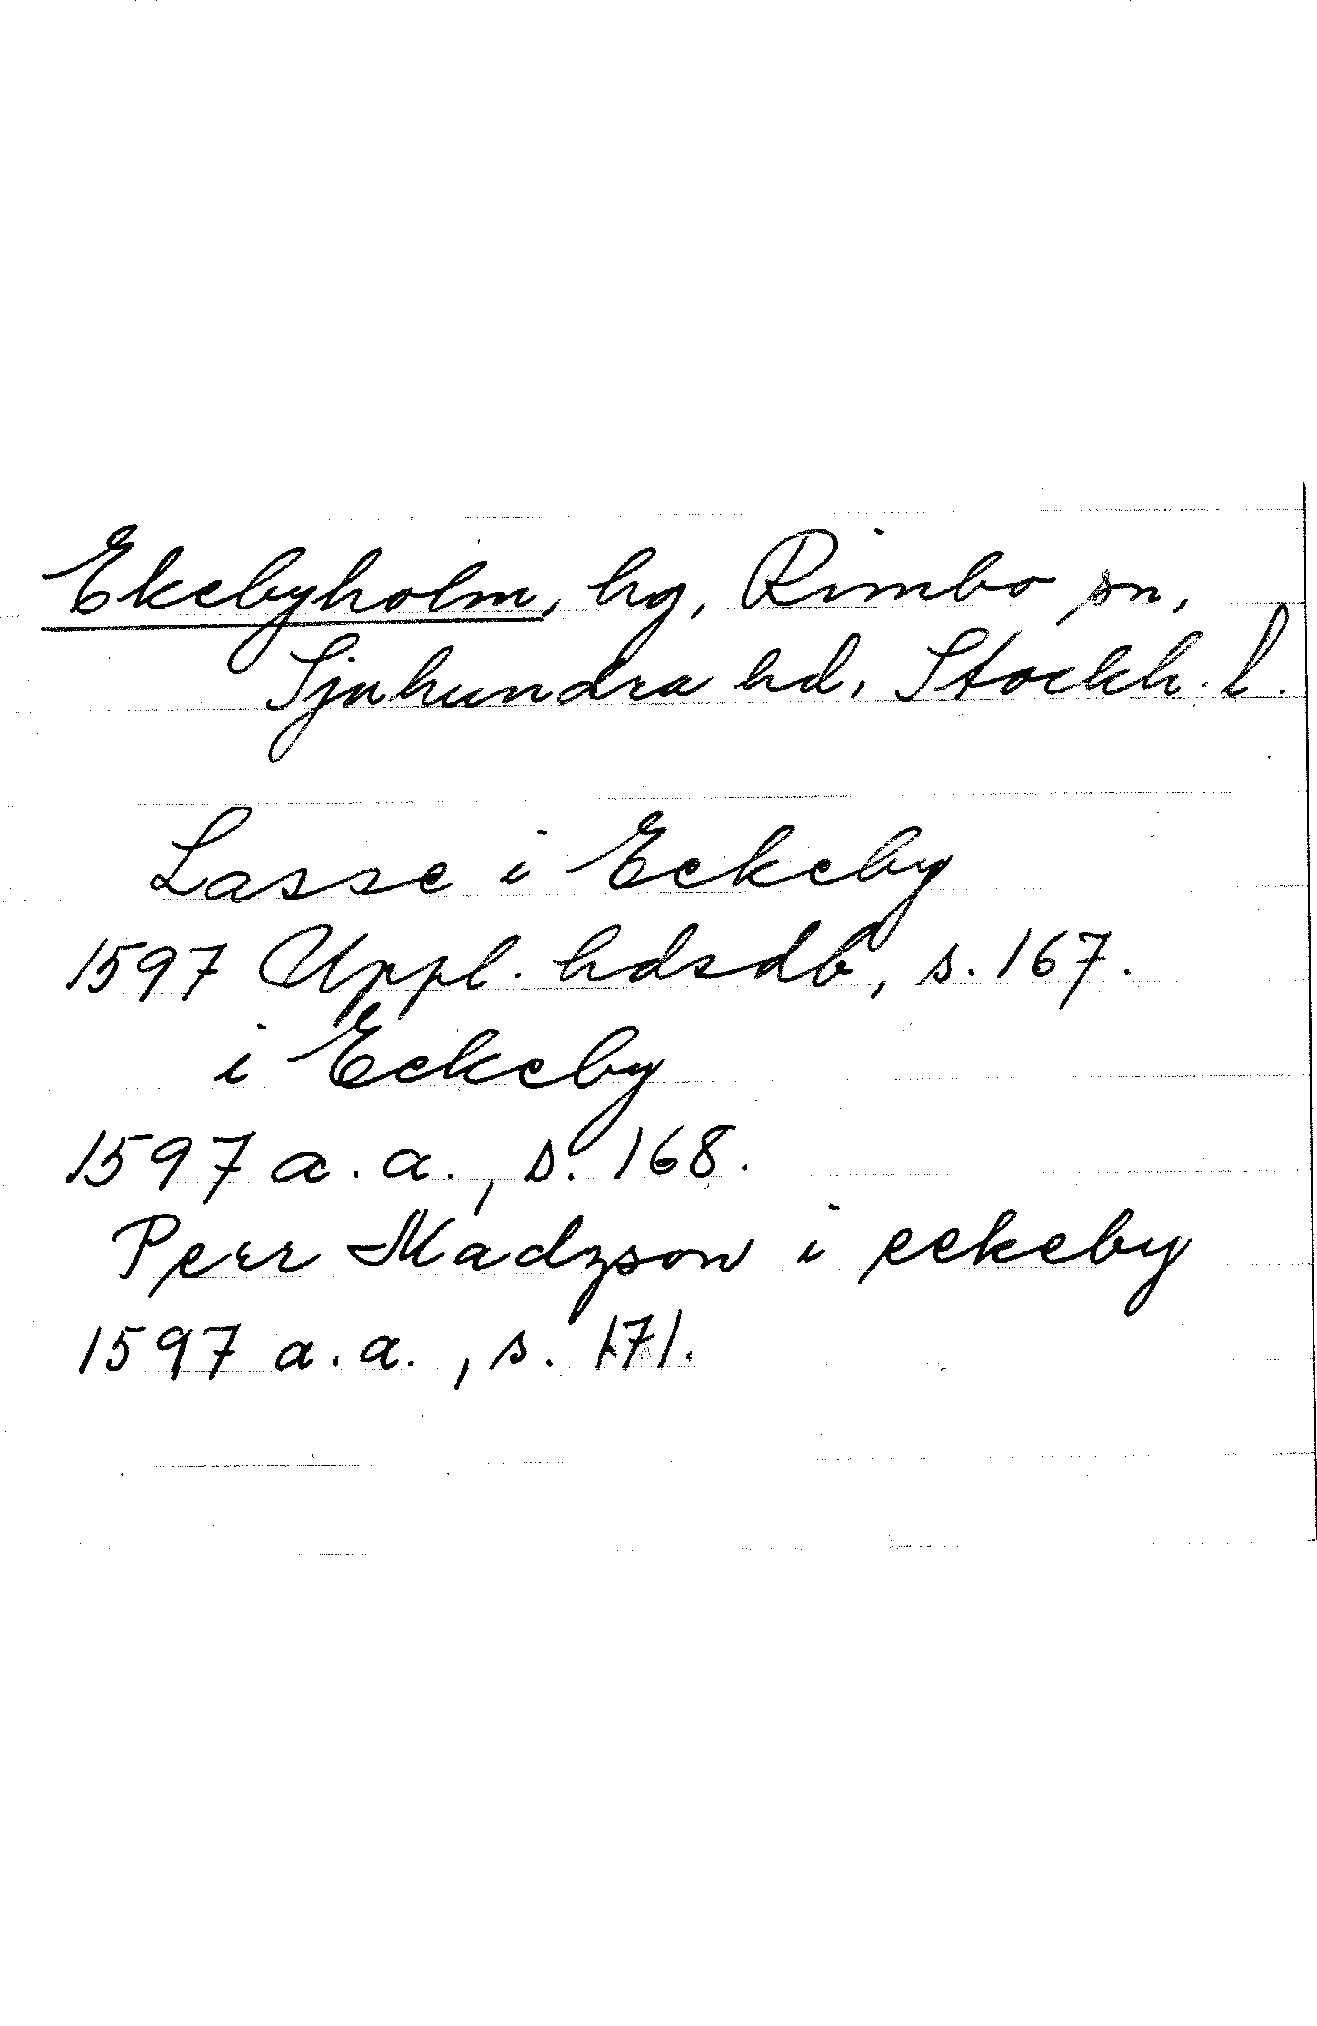 Ekebyholm, hg, Rimbo sn,
Sjuhundra hd, Stockh. l.
Lasse i Eckeby
1597 Uppl. hdsdb, s. 167.
i Eckeby
1597 a.a., s. 168.
Perr Madzson i eckeby
1597 a.a., s. 171.